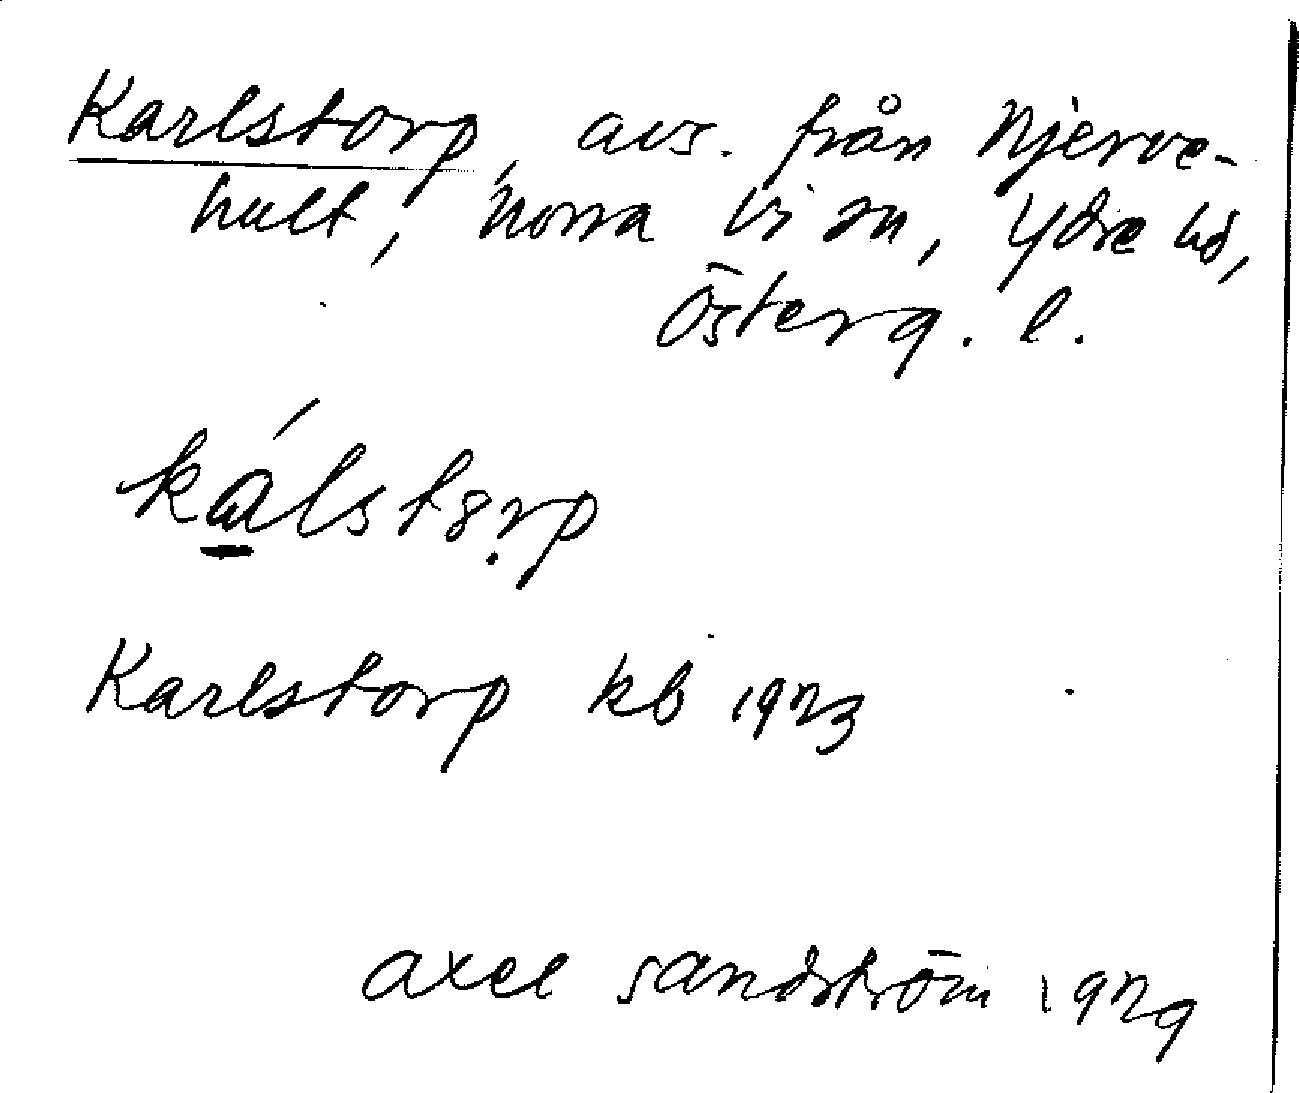 Karlstorp, avs. från Njerve-
hult, Norra Vi sn, Ydre hd,
Österg. l.
kálstorp
Karlstorp kb 1923
Axel Sandström 1929